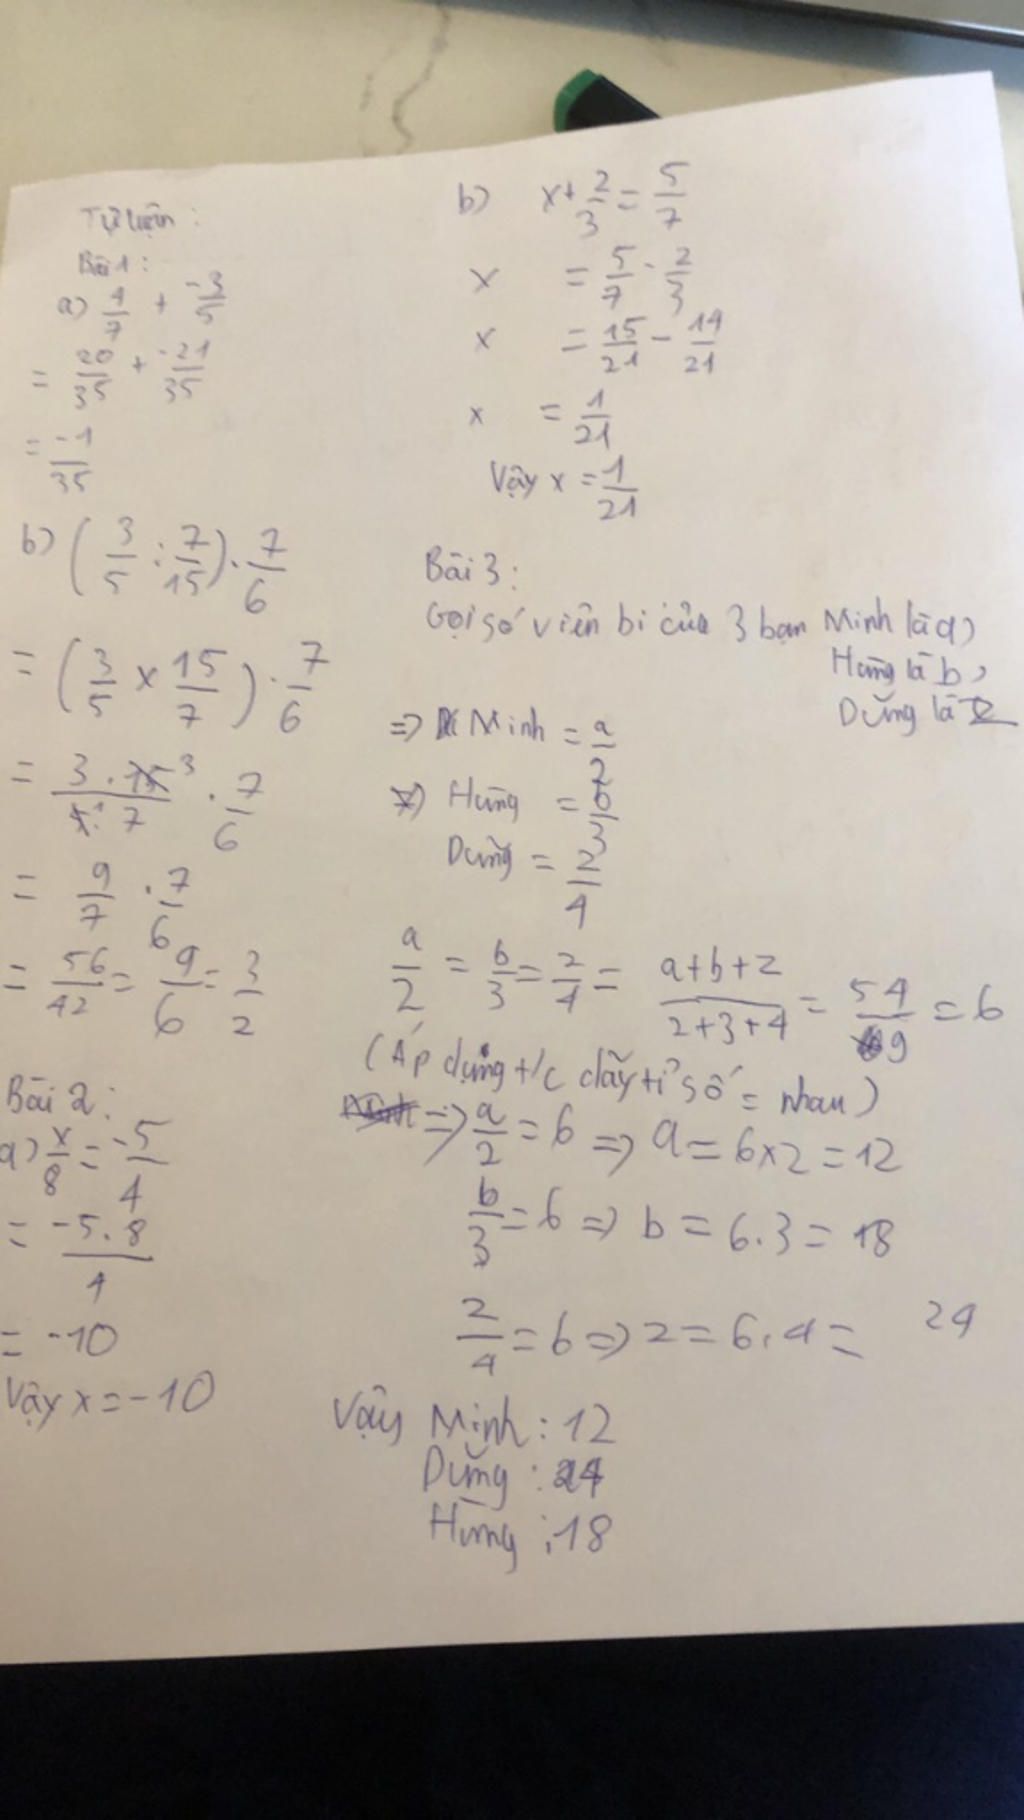 Tự luận :
Bài 1 :
a) 4/7 + -3/5
= 20/35 + -21/35
= -1/35
b) ( 3/5 : 7/15 ) . 7/6
= ( 3/5 × 15/7 ) . 7/6
= 3 . 15 ³ / 5 ¹ . 7 . 7/6
= 9/7 . 7/6
= 56/42 = 9/6 = 3/2
Bài 2 :
a) x/8 = -5/4
= -5.8/4
= -10
Vậy x = -10
b) x + 2/3 = 5/7
x = 5/7 - 2/3
x = 15/21 - 14/21
x = 1/21
Vậy x = 1/21
Bài 3 :
Gọi số viên bi của 3 bạn Minh là a,
Hùng là b,
Dũng là z
=> Minh = a/2
Hùng = b/3
Dũng = z/4
a/2 = b/3 = z/4 = a+b+z/2+3+4 = 54/9 = 6
(Áp dụng t/c dãy tỉ số = nhau)
=> a/2 = 6 => a = 6×2 = 12
b/3 = 6 => b = 6.3 = 18
z/4 = 6 => z = 6.4 = 24
Vậy Minh : 12
Dũng : 24
Hùng : 18